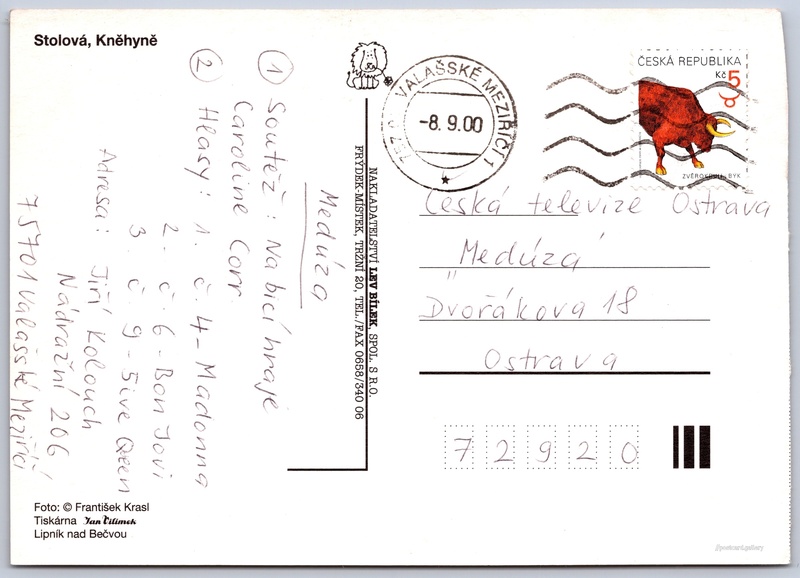 Stolová, Kněhyně
Medúza
① Soutěž: Na bicí hraje
Caroline Corr.
② Hlasy: 1. č. 4 - Madonna
2. č. 6 - Bon Jovi
3. č. 9 - 5ive Queen
Adresa: Jiří Kolouch
Nádražní 206
75701 Valašské Meziříčí
Foto: © František Krasl
Tiskárna Jan Vilímek
Lipník nad Bečvou
NAKLADATELSTVÍ LEV BÍLEK, SPOL. S R.O.
FRÝDEK-MÍSTEK, TRŽNÍ 20, TEL./FAX 0658/340 06
VALAŠSKÉ MEZIŘÍČÍ 1
-8.9.00
ČESKÁ REPUBLIKA
Kč 5
BÝK
Česká televize Ostrava
„Medúza"
Dvořákova 18
Ostrava
72920